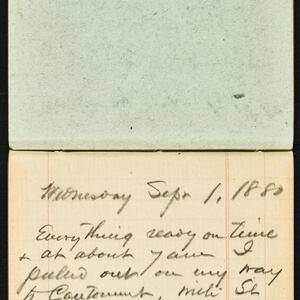 Wednesday Sept 1, 1880
Everything ready on time
& at about 7am I
pulled out on my way
to Cantonment, with St